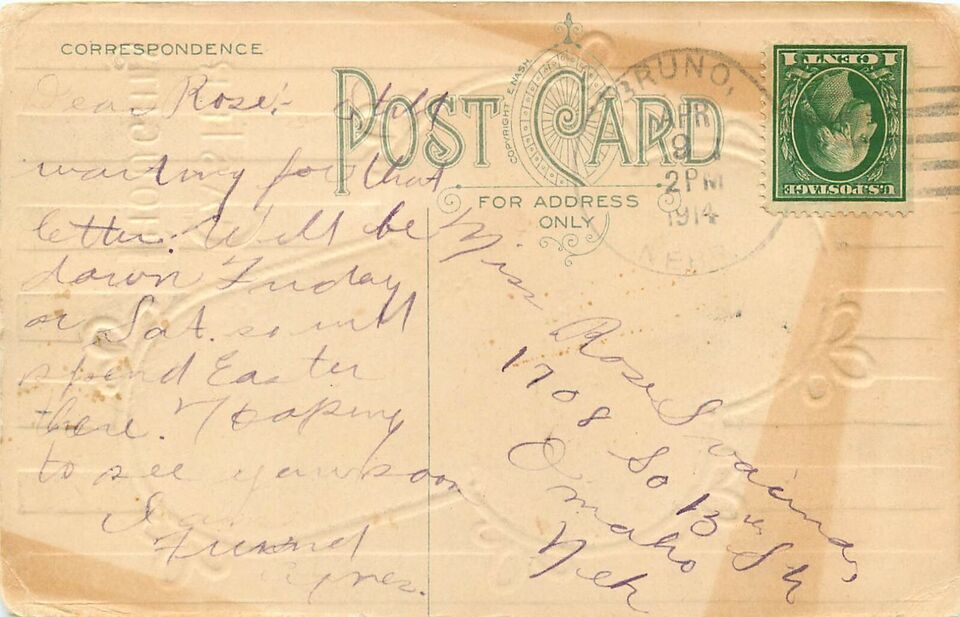 CORRESPONDENCE
POST CARD
COPYRIGHT E. NASH
FOR ADDRESS
ONLY
BRUNO,
APR
9
2PM
1914
NEBR.
1 CENT 1
U.S. POSTAGE
Dear Rose:- still
waiting for that
letter. Will be
down Friday
or Sat. so will
spend Easter
there. Hoping
to see you soon
I am
Friend
Agnes.
Miss Rose
1708 So 13th St
Omaha
Neb